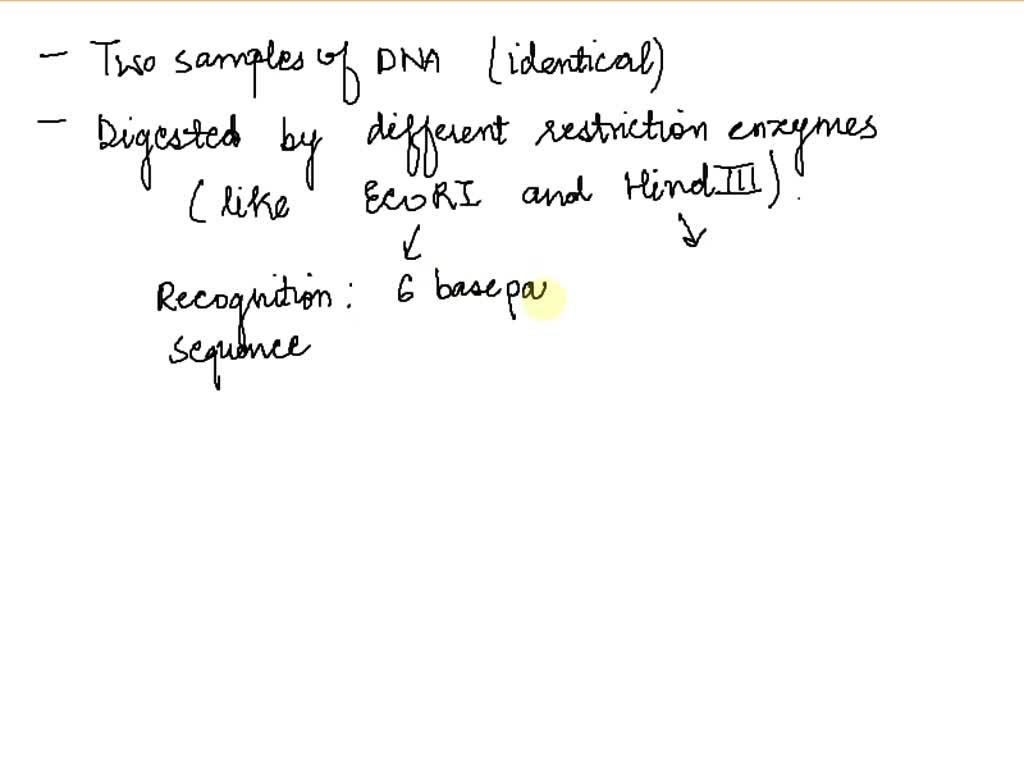 - Two samples of DNA (identical)
- Digested by different restriction enzymes
(like EcoRI and Hind III).
Recognition: 6 basepa
sequence